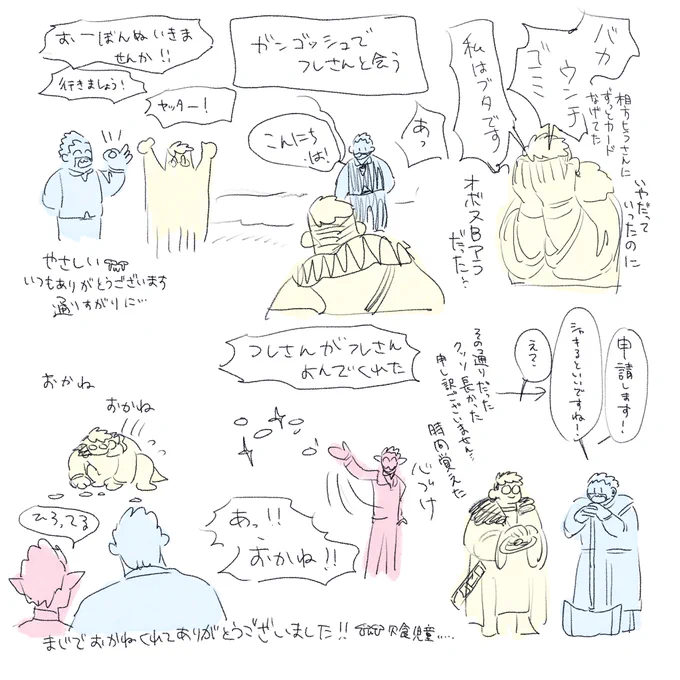 バカ
ウンチ
ゴミ
私はブタです
相方ヒラさんに
ずっとカード
なげてた
いやだって
いったのに
ガンゴッシュで
フレさんと会う
あっ
こんにち
は!
オボスBアラ
だった…
おーぼんぬいきま
せんか!!
行きましょう!
ヤッター!
やさしい
いつもありがとうございます
通りすがりに…
申請します!
シャキるといいですね!
え?
その通りだった
クッソ長かった
申し訳ございません…
時間覚えた
フレさんがフレさん
よんでくれた
バラまけ
あっ!!
おかね!!
おかね
おかね
ひろってる
まじでおかねくれてありがとうございました!! 欠食児童……